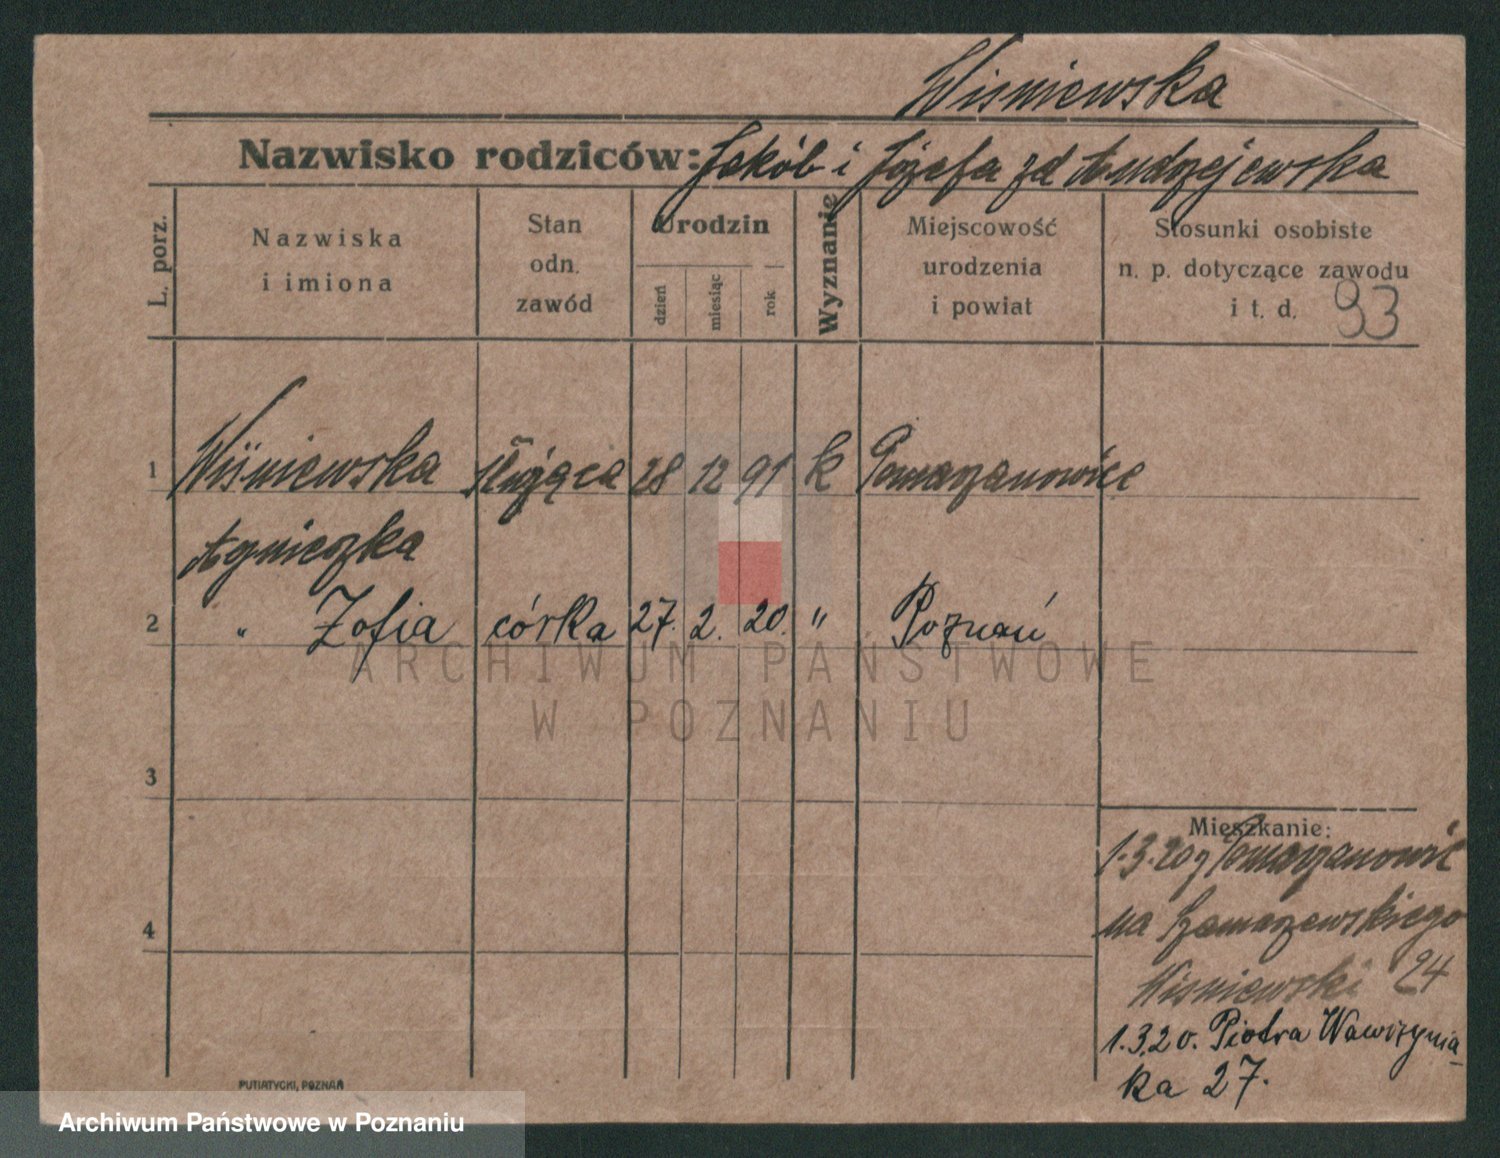 Wisniewska
Nazwisko rodziców: Jakób i Józefa zd Andrzejewska
L. porz.
Nazwiska
i imiona
Stan
odn.
zawód
Urodzin
dzień
miesiąc
rok
Wyznanie
Miejscowość
urodzenia
i powiat
Stosunki osobiste
n. p. dotyczące zawodu
i t. d.
93
1 Wiśniewska służąca 28 12 91 k Pomarzanowice
Agnieszka
2 " Zofia córka 27. 2. 20. " Poznań
3
4
Mieszkanie:
1.3.20 z Pomarzanowic
na Szamarzewskiego
Wisniewski 24
1.3.20. Piotra Wawrzynia-
ka 27.
PUTIATYCKI, POZNAŃ
ARCHIWUM PAŃSTWOWE
W POZNANIU
Archiwum Państwowe w Poznaniu